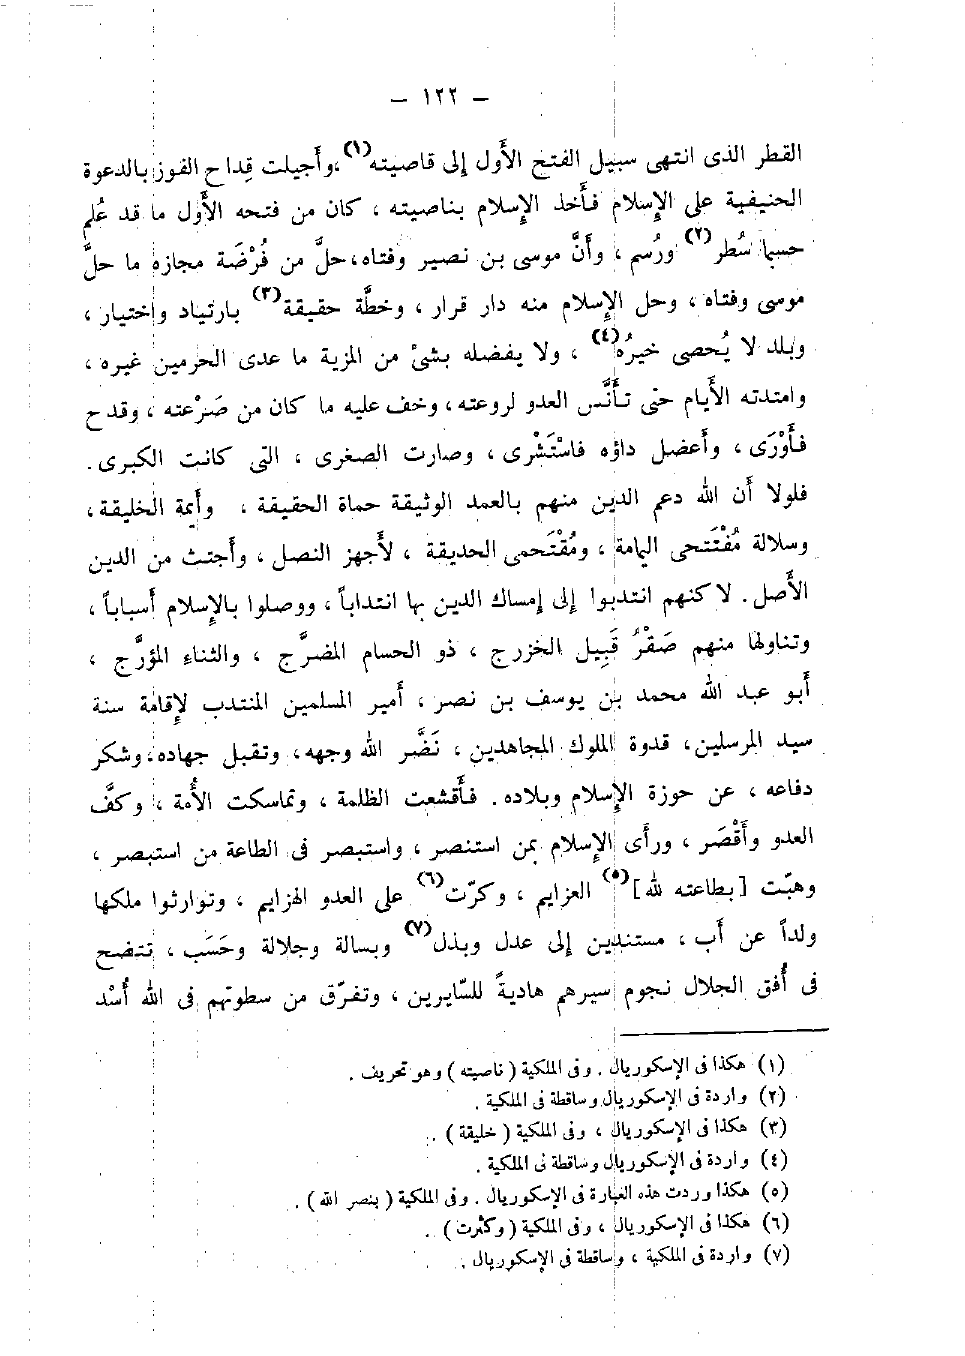 — ١٢٢ —
القطر الذى انتهى سبيل الفتح الأول إلى قاصيته(١)، وأجيلت قِداح الفوز بالدعوة
الحنيفية على الإسلام فأخذ الإسلام بناصيته ، كان من فتحه الأول ما قد عُلم
حسبما سُطر(٢) ورُسم ، وأنَّ موسى بن نصير وفتاه، حلَّ من فُرْضَة مجازه ما حلَّ
موسى وفتاه ، وحل الإسلام منه دار قرار ، وخطَّة حقيقة(٣) بارتياد واختيار ،
وبلد لا يُحصى خيرُه(٤) ، ولا يفضله بشئ من المزية ما عدى الحرمين غيره ،
وامتدته الأيام حتى تأنَّس العدو لروعته ، وخف عليه ما كان من صَرْعته ، وقدح
فأَوْرَى ، وأعضل داؤه فاسْتَشْرى ، وصارت الصغرى ، التى كانت الكبرى .
فلولا أن الله دعم الدين منهم بالعمد الوثيقة حماة الحقيقة ، وأيمة الخليقة ،
وسلالة مُفْتَتحى اليمامة ، ومُقْتَحمى الحديقة ، لأجهز النصل ، وأجتث من الدين
الأصل . لاكنهم انتدبوا إلى إمساك الدين بها انتداباً ، ووصلوا بالإسلام أسباباً ،
وتناولها منهم صَقْرُ قَبِيل الخزرج ، ذو الحسام المضرَّج ، والثناء المؤرَّج ،
أبو عبد الله محمد بن يوسف بن نصر ، أمير المسلمين المنتدب لإقامة سنة
سيد المرسلين، قدوة الملوك المجاهدين ، نَضَّر الله وجهه، وتقبل جهاده، وشكر
دفاعه ، عن حوزة الإسلام وبلاده . فأقشعت الظلمة ، وتماسكت الأُمة ، وكفَّ
العدو وأَقْصَر ، ورأى الإسلام بمن استنصر ، واستبصر فى الطاعة من استبصر ،
وهبّت [ بطاعته لله ](٥) العزايم ، وكرّت(٦) على العدو الهزايم ، وتوارثوا ملكها
ولداً عن أب ، مستندين إلى عدل وبذل(٧) وبسالة وجلالة وحَسَب ، تتضح
فى أُفق الجلال نجوم سيرهم هاديةً للسّايرين ، وتفرّق من سطوتهم فى الله أُسْد
(١) هكذا فى الإسكوريال . وفى الملكية ( ناصيته ) وهو تحريف .
(٢) واردة فى الإسكوريال وساقطة فى الملكية .
(٣) هكذا فى الإسكوريال ، وفى الملكية ( خليقة ) .
(٤) واردة فى الإسكوريال وساقطة فى الملكية .
(٥) هكذا وردت هذه العبارة فى الإسكوريال . وفى الملكية ( بنصر الله ) .
(٦) هكذا فى الإسكوريال ، وفى الملكية ( وكثرت ) .
(٧) واردة فى الملكية ، وساقطة فى الإسكوريال .